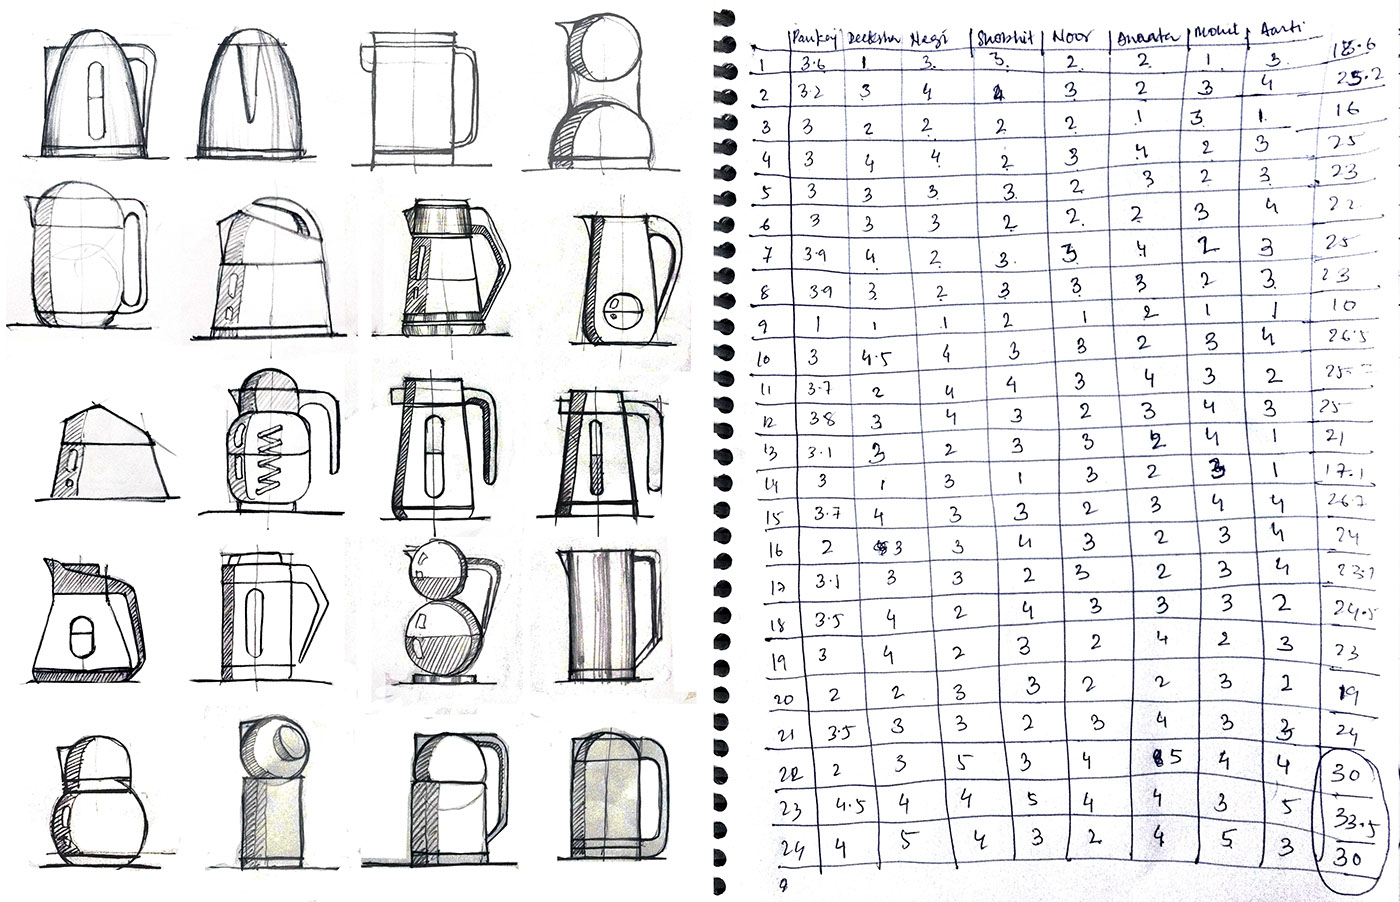 Pankaj Deeksha Negi Shobhit Noor Ananta Mohit Aarti
1 3.6 1 3 3 2 2 1 3 18.6
2 3.2 3 4 4 3 2 3 4 25.2
3 3 2 2 2 2 1 3 1 16
4 3 4 4 2 3 4 2 3 25
5 3 3 3 3 2 3 2 3 23
6 3 3 3 2 2 2 3 4 22
7 3.9 4 2 3 3 4 2 3 25
8 3.9 3 2 3 3 3 2 3 23
9 1 1 1 2 1 2 1 1 10
10 3 4.5 4 3 3 2 3 4 26.5
11 3.7 2 4 4 3 4 3 2
12 3.8 3 4 3 2 3 4 3 25
13 3.1 3 2 3 3 2 4 1 21
14 3 1 3 1 3 2 3 1 17.1
15 3.7 4 3 3 2 3 4 4 26.7
16 2 3 3 4 3 2 3 4 24
17 3.1 3 3 2 3 2 3 4 23.1
18 3.5 4 2 4 3 3 3 2 24.5
19 3 4 2 3 2 4 2 3 23
20 2 2 3 3 2 2 3 2 19
21 3.5 3 3 2 3 4 3 3 24
22 2 3 5 3 4 5 4 4 30
23 4.5 4 4 5 4 4 3 5 33.5
24 4 5 4 3 2 4 5 3 30